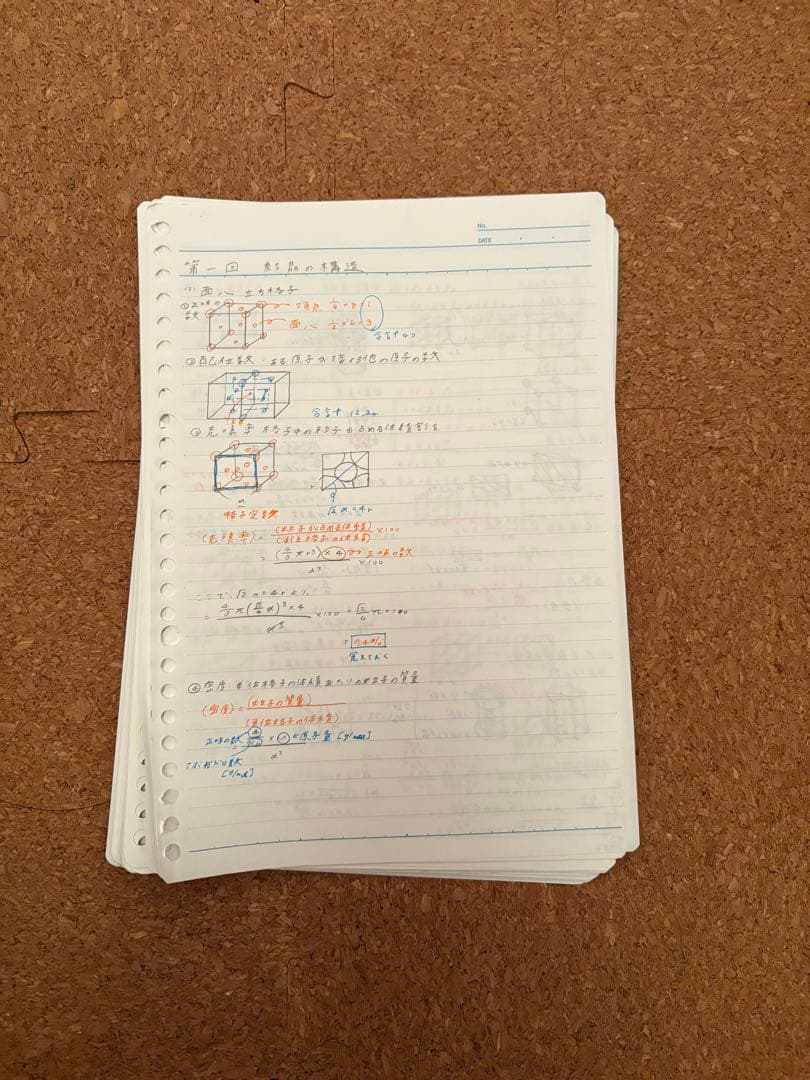 No.
DATE
第一回 結晶の構造
(1) 面心立方格子
① 正味の数
頂点 1/8 × 8 = 1
面心 1/2 × 6 = 3
合計 4コ
② 配位数・ある原子が接する他の原子の数
合計 12コ
③ 充填率 格子中の粒子が占める体積割合
a
格子定数
√2 a = 4r
(充填率) = (粒子が占める体積)/(単位格子の体積) × 100
= (4/3 π r³) × 4 正味の数 / a³ × 100
ここで、√2 a = 4r より
= 4/3 π (√2/4 a)³ × 4 / a³ × 100 = √2/6 π × 100
= 74%
覚えておく
④ 密度・単位格子の体積あたりの粒子の質量
(密度) = (粒子の質量)/(単位格子の体積)
正味の数 4 × 原子量 [g/mol]
a³
アボガドロ数
[0/mol]